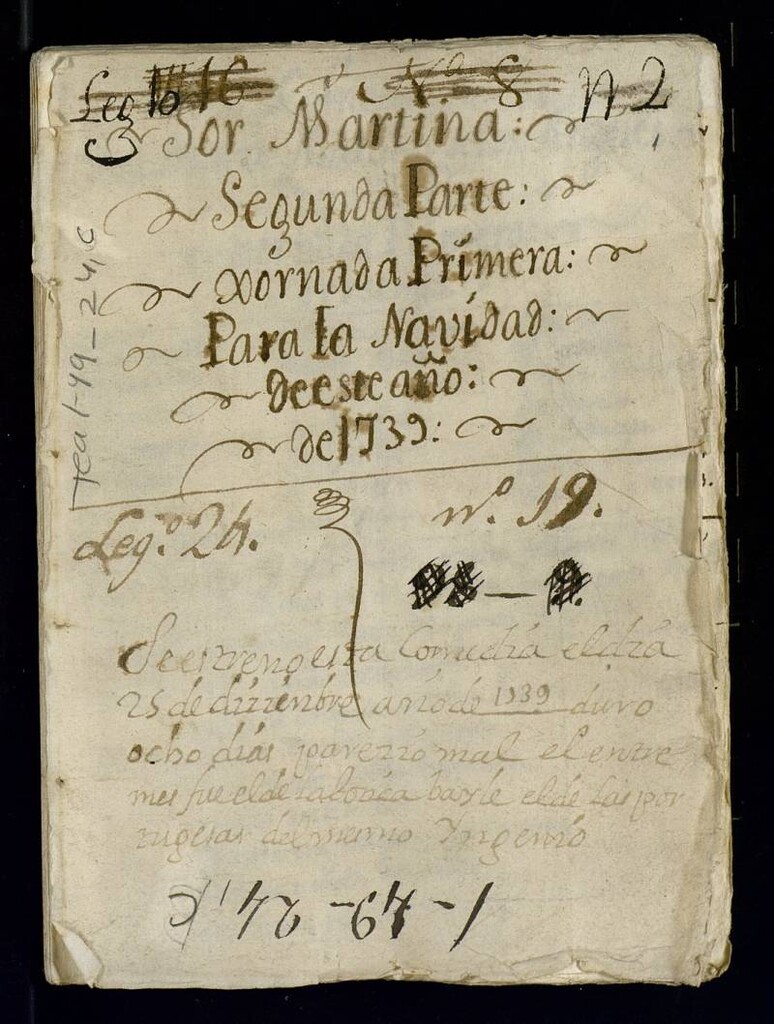 Leg 16 Nº 8 N 2
Sor Martina:
Segunda Parte:
Xornada Primera:
Para la Navidad:
de este año:
de 1739:
tea 1-49-24, c
Legº. 24. nº. 19.
Se estreno esta Comedia el dia
25 de diziembre año de 1739 duro
ocho dias parezio mal el entre
mes fue el de la bayle el de las por
tugesas del mesmo Yngenio
1-49-24, c